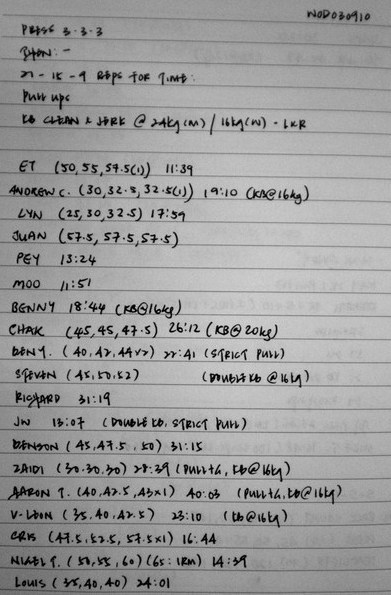 WOD030910
PRESS 3-3-3
THEN: -
21 - 15 - 9 REPS FOR TIME:
PULL UPS
KB CLEAN & JERK @ 24kg (M) / 16kg (W) - L&R
ET (50, 55, 57.5(1)) 11:39
ANDREW C. (30, 32.5, 32.5(1)) 19:10 (KB@16kg)
LYN (25, 30, 32.5) 17:59
JUAN (57.5, 57.5, 57.5)
PEY 13:24
MOO 11:51
BENNY 18:44 (KB@16kg)
CHAK (45, 45, 47.5) 26:12 (KB@20kg)
BENY. (40, 42, 44x2) 22:41 (STRICT PULL)
STEVEN (45, 50, 52) (DOUBLE KB @16kg)
RICHARD 31:19
JW 13:07 (DOUBLE KB, STRICT PULL)
BENSON (45, 47.5, 50) 31:15
ZAIDI (30. 30. 30) 28:39 (PULL+G, KB@16kg)
AARON T. (40, 42.5, 43x1) 40:03 (PULL+G, KB@16kg)
V-LEON (35, 40, 42.5) 23:10 (KB@16kg)
CRIS (47.5, 52.5, 57.5x1) 16:44
NIGEL T. (50, 55, 60) (65: 1RM) 14:39
LOUIS (35, 40, 40) 24:01